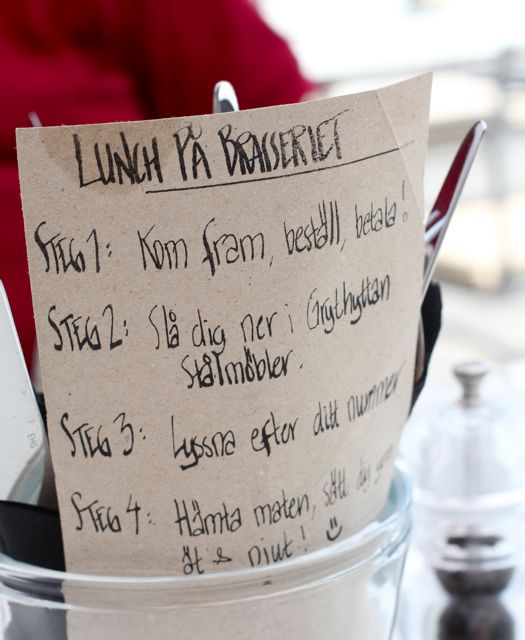 LUNCH PÅ BRASSERIET
STEG 1: Kom fram, beställ, betala!
STEG 2: Slå dig ner i Grythyttan
Stålmöbler.
STEG 3: Lyssna efter ditt nummer
STEG 4: Hämta maten, sätt dig
ät & njut! :)